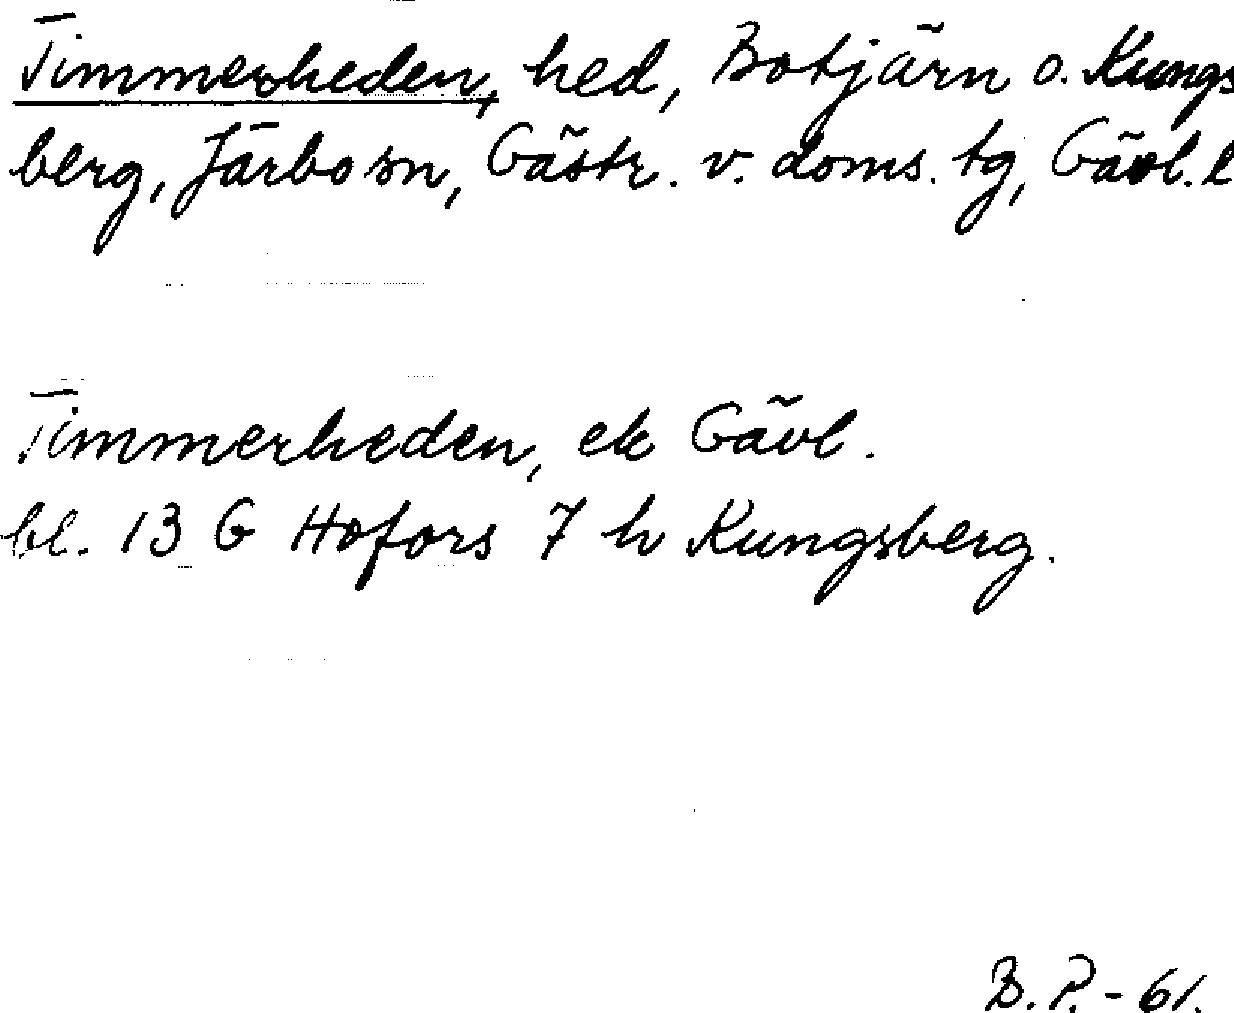 Timmerheden, hed, Botjärn o. Kungs
berg, Järbo sn, Gästr. v. doms. tg, Gävl. l
Timmerheden, ek Gävl.
bl. 13 G Hofors 7 h Kungsberg.
B. P. - 61.